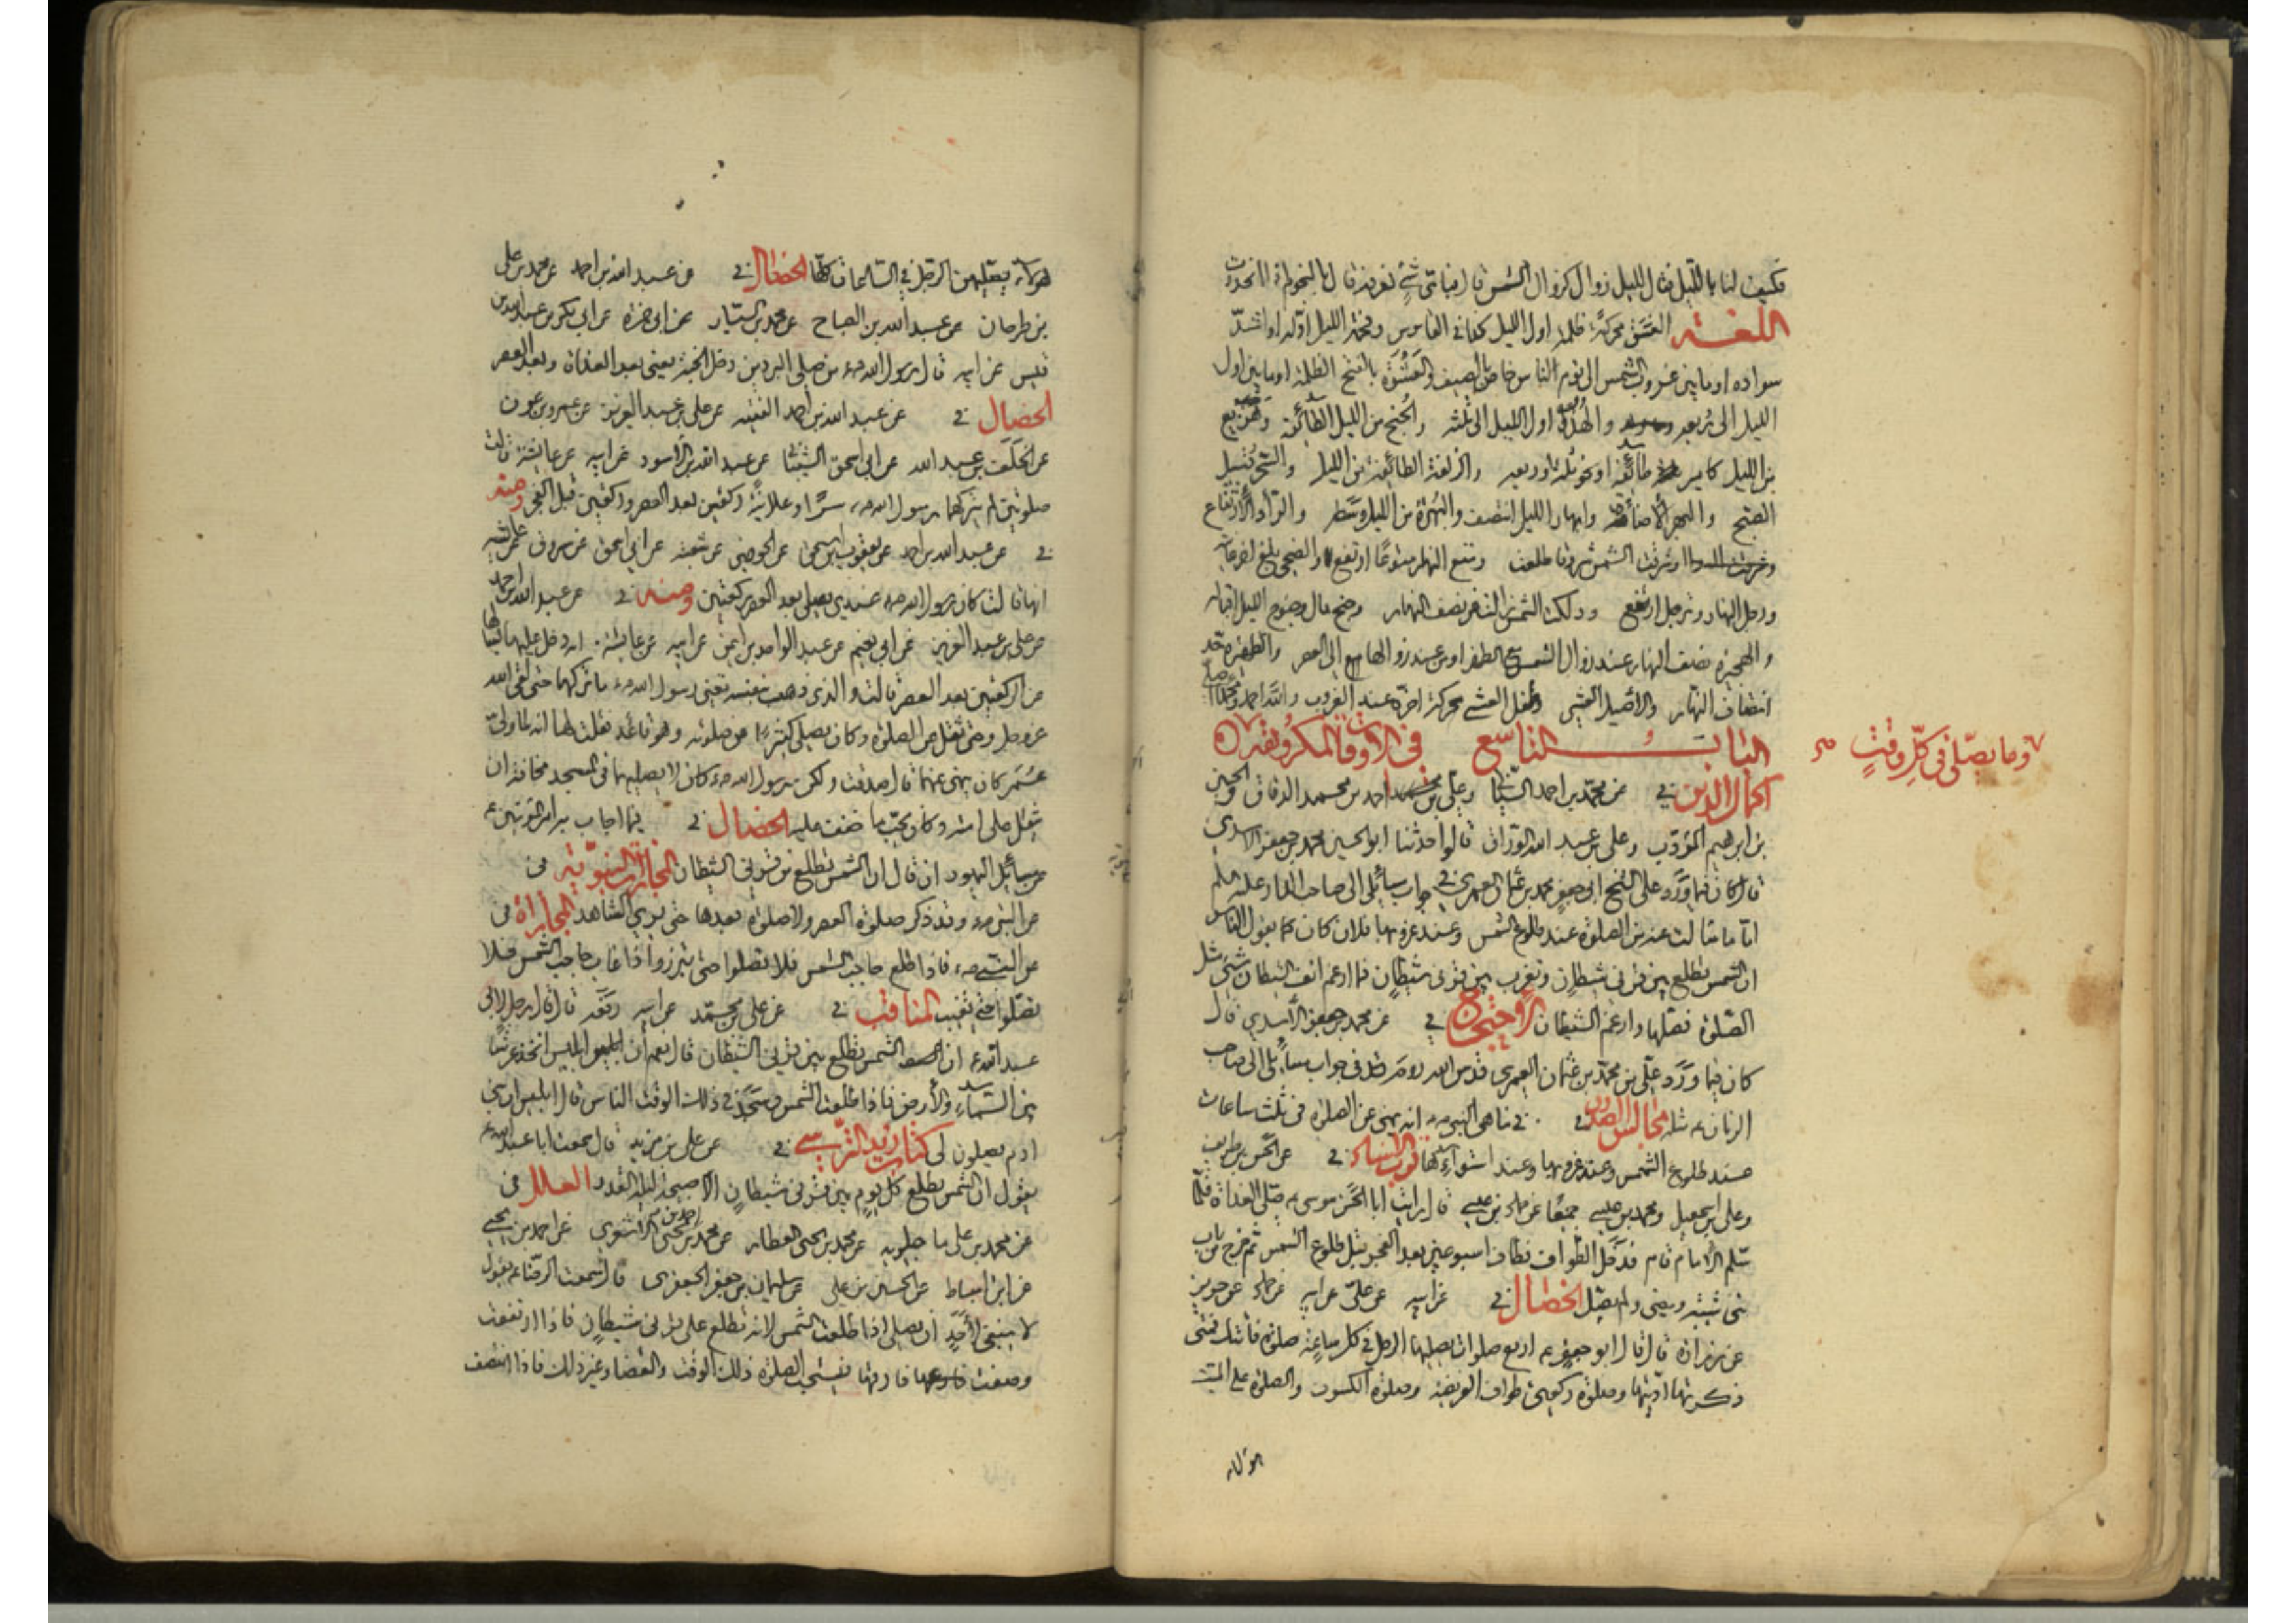 فكيف لنا بالليل فقال لليل زوال كزوال الشمس قال فبأي شيء نعرفه قال بالنجوم اذا انحدرت
اللغة الغسق محركة ظلمة اول الليل كذا في القاموس وفحمة الليل اوله او اشد
سواده او ما بين غروب الشمس الى نوم الناس خاص بالصيف والعشوة بالفتح الظلمة او ما بين اول
الليل الى ربعه والهدء اول الليل الى ثلثه والجنح من الليل الطائفة وهزيع
من الليل كامير طائفة او نحو ثلثه او ربعه والزلفة الطائفة من الليل والسحر قبيل
الصبح وابهار الليل انتصف والبهرة من الليل وسطه والرأد الارتفاع
وشرقت الشمس شروقا طلعت ومتع النهار متوعا ارتفع والضحى بلغ اخر غايته
وترجل ارتفع ودلكت الشمس زالت عن نصف النهار وجنح مال وجنوح الليل اقباله
والهجيرة نصف النهار عند زوال الشمس مع الظهر او من عند زوالها الى العصر والظهيرة حد
انتصاف النهار والاصيل العشي وطفل العشي محركة اخره عند الغروب
الباب التاسع في الاوقات المكروهة
وما يصلى في كل وقت صح
اكمال الدين في عن محمد بن احمد الشيباني وعلي بن احمد بن محمد الدقاق والحسين
بن ابرهيم المؤدب وعلي بن عبد الله الوراق قالوا حدثنا ابو الحسين محمد بن جعفر الاسدي
قال كان فيما ورد على الشيخ ابي جعفر محمد بن عثمان العمري في جواب مسائلي الى صاحب الدار عليه السلم
اما ما سألت عنه من الصلوة عند طلوع الشمس وعند غروبها فلان كان كما يقول الناس
ان الشمس تطلع بين قرني شيطان وتغرب بين قرني شيطان فما ارغم انف الشيطان شيء مثل
الصلوة فصلها وارغم الشيطان الاحتجاج في عن محمد بن جعفر الاسدي قال
كان فيما ورد علي من محمد بن عثمان العمري قدس الله روحه في جواب مسائلي الى صاحب
الزمان ع مثله مجالس الصدوق في مناهي النبي ص انه نهى عن الصلوة في ثلث ساعات
عند طلوع الشمس وعند غروبها وعند استوائها قرب الاسناد في عن الحسن بن طريف
وعلي بن اسمعيل ومحمد بن عيسى جميعا عن حماد بن عيسى قال رايت ابا الحسن موسى ع صلى الغداة فلما
سلم الامام قام فدخل الطواف فطاف اسبوعين بعد الفجر قبل طلوع الشمس ثم خرج من باب
بني شيبة ومضى ولم يصل الخصال في عن ابيه عن علي عن ابيه عن حماد عن حريز
عن زرارة قال قال ابو جعفر ع اربع صلوات يصليها الرجل في كل ساعة صلوة فاتتك فمتى
ذكرتها اديتها وصلوة ركعتي طواف الفريضة وصلوة الكسوف والصلوة على الميت
هولاء
هولاء يصليهن الرجل في الساعات كلها الخصال في عن عبد الله بن احمد عن محمد بن علي
بن طرخان عن عبد الله بن الصباح عن محمد بن سيار عن ابي حمزة عن ابي بكر بن عبد الله بن
قيس عن ابيه قال قال رسول الله ص من صلى البردين دخل الجنة يعني بعد الغداة وبعد العصر
الخصال في عن عبد الله بن احمد الفقيه عن علي بن عبد العزيز عن عمرو بن عون
عن خلف بن عبد الله عن ابي اسحق الشيباني عن عبد الله بن الاسود عن ابيه عن عايشة قالت
صلوتين لم يتركهما رسول الله ص سرا وعلانية ركعتين بعد العصر وركعتين قبل الفجر ومنه
في عن عبد الله بن احمد عن يعقوب بن اسحق عن الحوضي عن شعبة عن ابي اسحق عن مسروق عن عايشة
انها قالت كان رسول الله ص عندي يصلي بعد العصر ركعتين ومنه في عن عبد الله بن احمد
عن علي بن عبد العزيز عن ابي نعيم عن عبد الواحد بن ايمن عن ابيه عن عايشة انه دخل عليها يسألها
عن الركعتين بعد العصر قالت والذي ذهب بنفسه تعني رسول الله ص ما تركهما حتى لقي الله
عز وجل وحتى ثقل عن الصلوة وكان يصلي كثيرا من صلوته وهو قاعد فقلت لها انه لما ولي
عمر كان ينهى عنهما قالت صدقت ولكن رسول الله ص كان لا يصليهما في المسجد مخافة ان
يثقل على امته وكان يحب ما خفف عليهم الخصال في فيما اجاب به امير المؤمنين ع
من مسائل اليهود ان قال ان الشمس تطلع من قرني الشيطان المجازات النبوية في
عن النبي ص وقد ذكر صلوة العصر ولا صلوة بعدها حتى يرى الشاهد المجازات في
عن النبي ص فاذا طلع حاجب الشمس فلا تصلوا حتى تبرز واذا غاب حاجب الشمس فلا
تصلوا حتى تغيب المناقب في عن علي بن محمد عن ابيه رفعه قال قال رجل لابي
عبد الله ع ان الشمس تطلع بين قرني الشيطان قال نعم ان ابليس اتخذ عرشا
بين السماء والارض فاذا طلعت الشمس وسجد في ذلك الوقت الناس قال ابليس ان بني
ادم يصلون لي كتاب زيد النرسي في عن علي بن مزيد قال سمعت ابا عبد الله ع
يقول ان الشمس تطلع كل يوم بين قرني شيطان الا صبيحة ليلة القدر العلل في
عن محمد بن علي ماجيلويه عن محمد بن يحيى العطار عن محمد بن احمد بن يحيى الاشعري عن احمد بن يحيى
عن ابن اسباط عن الحسين بن علي عن سليمان بن جعفر الجعفري قال سمعت الرضا ع يقول
لا ينبغي لاحد ان يصلي اذا طلعت الشمس لانها تطلع على قرني شيطان فاذا ارتفعت
وصفت فارقها فتستحب الصلوة ذلك الوقت والقضا وغير ذلك فاذا انتصف